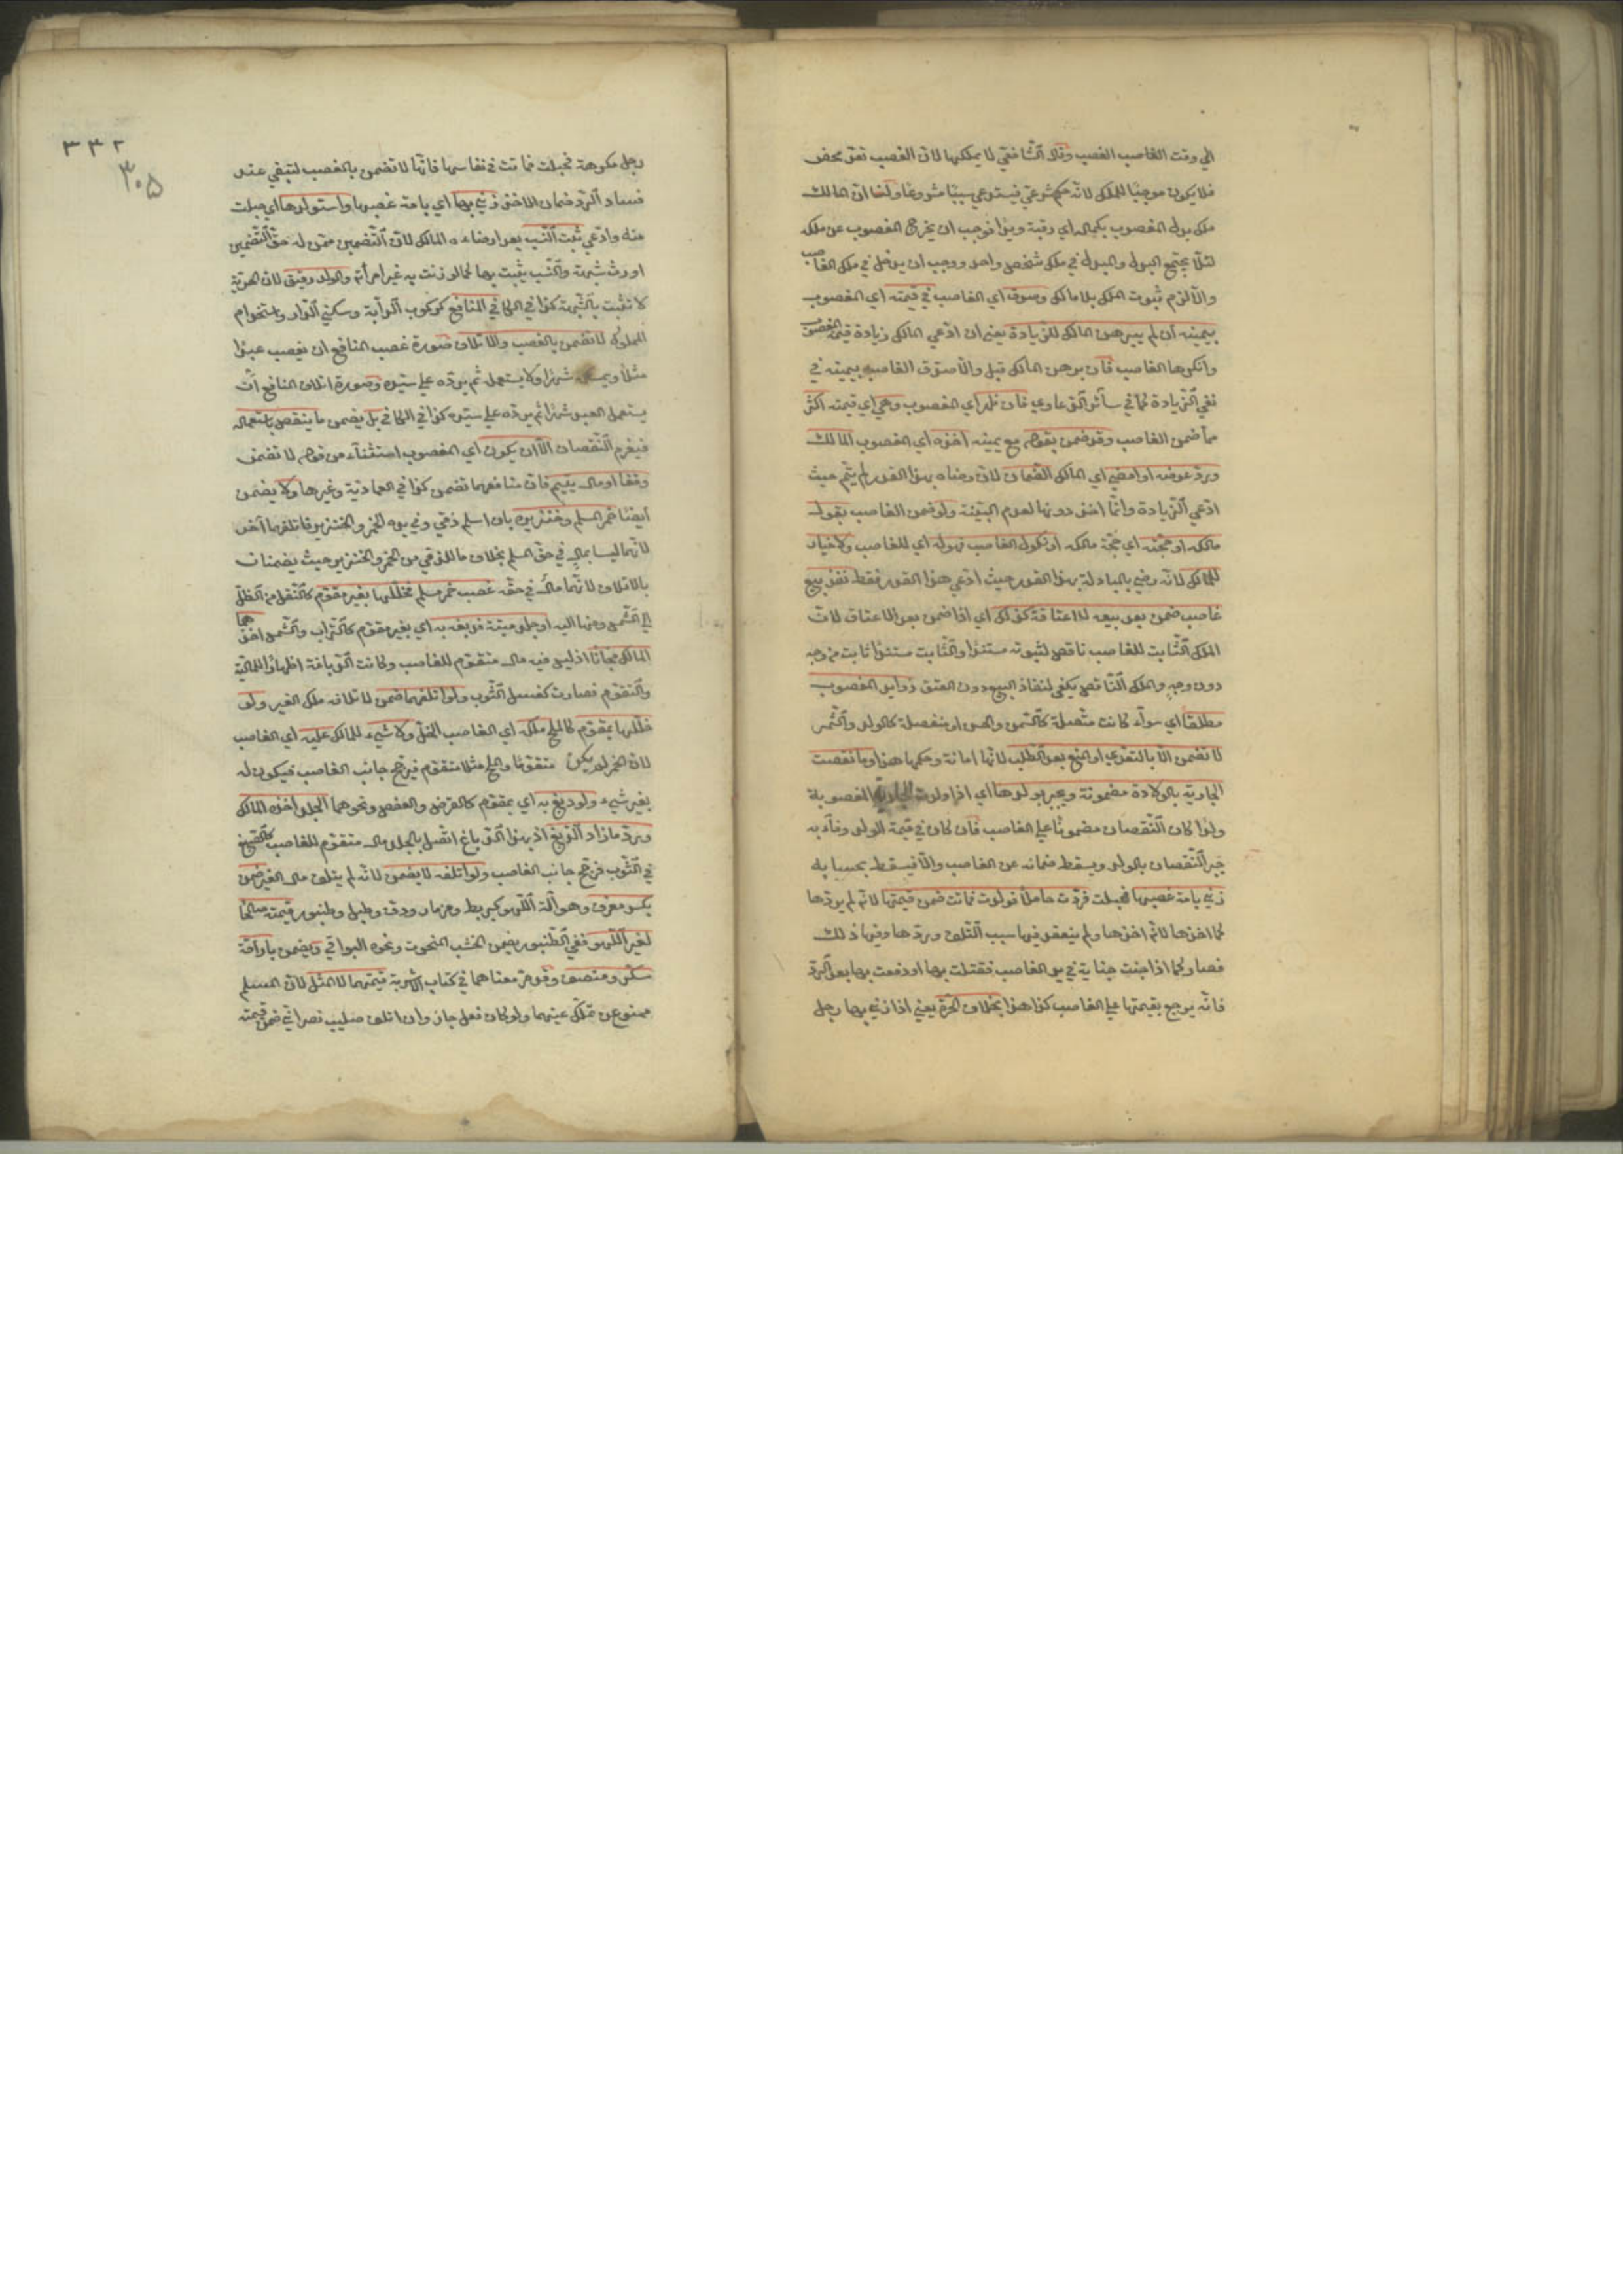 الي وقت الغاصب الغصب وقال الشافعي لا يملكها لان الغصب تعد محض
فلا يكون موجبًا للملك لانه حكم شرعي فيستدعي سببًا مشروعًا ولنا ان المالك
ملك بدل المغصوب بكماله اي رقبة ويدا فوجب ان يخرج المغصوب عن ملكه
لئلا يجتمع البدل والمبدل في ملك شخص واحد ووجب ان يدخل في ملك الغاصب
والا لزم ثبوت الملك بلا مالك وصدق اي الغاصب في قيمته اي المغصوب
بيمينه ان لم يبرهن المالك للزيادة يعني ان ادعي المالك زيادة قيمة المغصوب
وانكرها الغاصب فان برهن المالك قبل والا صدق الغاصب بيمينه في
نفي الزيادة كما في سائر الدعاوي فان ظهر اي المغصوب وهي اي قيمته اكثر
مما ضمن الغاصب وقد ضمن بقوله مع يمينه اخذه اي المغصوب المالك
ورد عوضه او امضي اي المالك الضمان لان رضاه بهذا القدر لم يتم حيث
ادعي الزيادة وانما اخذ دونها لعدم البينة ولو ضمن الغاصب بقول
مالكه او حجته اي حجة مالكه او نكول الغاصب فهو له اي للغاصب ولا خيار
للمالك لانه رضي بالمبادلة بهذا القدر حيث ادعي هذا القدر فقط نفذ بيع
غاصب ضمن بعد بيعه لا اعتاقه كذلك اي اذا ضمن بعد الاعتاق لان
الملك الثابت للغاصب ناقص لثبوته مستندًا والثابت مستندًا ثابت من وجه
دون وجه والملك الناقص يكفي لنفاذ البيع دون العتق زوايد المغصوب
مطلقًا اي سواء كانت متصلة كالسمن والحسن او منفصلة كالولد والثمر
لا تضمن الا بالتعدي او المنع بعد الطلب لانها امانة وحكمها هذا وما نقصت
الجارية بالولادة مضمونة ويجبر بولدها اي اذا ولدت الجارية المغصوبة
ولدًا كان النقصان مضمونًا علي الغاصب فان كان في قيمة الولد وفاء به
جبر النقصان بالولد ويسقط ضمانه عن الغاصب والا فيسقط بحسابه
زني بامة غصبها فحبلت فردت حاملًا فولدت فماتت ضمن قيمتها لانه لم يردها
كما اخذها لانه اخذها ولم ينعقد فيها سبب التلف وردها وفيها ذلك
فصار كما اذا جنت جناية في يد الغاصب فقتلت بها او دفعت بها بعد الرد
فانه يرجع بقيمتها علي الغاصب كذا هذا بخلاف الحرة يعني اذا زني بها رجل
٣٣٢
٣٠٥
رجل مكرهة فحبلت فماتت في نفاسها فانها لا تضمن بالغصب لتبقي عند
فساد الرد ضمان الاخذ زني بها اي بامة غصبها واستولدها اي حبلت
منه وادعي ثبت النسب بعد ارضاءه المالك لان التضمين ممن له حق التضمين
اورث شبهة والنسب يثبت بها كما لو زفت اليه غير امرأته والولد رقيق لان الحرية
لا تثبت بالشبهة كذا في الكافي المنافع كركوب الدابة وسكني الدار واستخدام
المملوك لا تضمن بالغصب والاتلاف صورة غصب المنافع ان يغصب عبدًا
مثلًا ويمسكه شهرًا ولا يستعمل ثم يرده علي سيده وصورة اتلاف المنافع ان
يستعمل العبد شهرًا ثم يرده علي سيده كذا في الكافي بل يضمن ما ينقص باستعماله
فيغرم النقصان الا ان يكون اي المغصوب استثناء من قوله لا تضمن
وقفا او مال يتيم فان منافعهما تضمن كذا في العمادية وغيرها ولا يضمن
ايضًا خمر المسلم وخنزيره بان اسلم ذمي وفي يده الخمر والخنزير فاتلفهما آخر
لانهما ليسا بمال في حق المسلم بخلاف ما للذمي من الخمر والخنزير حيث يضمنان
بالاتلاف لانهما مال في حقه غصب خمر مسلم فخللها بغير متقوم كالنقل من الظل
الي الشمس ومنها اليه او جلد ميتة فدبغه به اي بغير متقوم كالتراب والشمس اخذهما
المالك مجانًا اذ ليس فيه مال متقوم للغاصب وكانت الدباغة اظهارًا للمالية
والتقوم فصارت كغسل الثوب ولو اتلفهما ضمن لاتلاف ملك الغير ولو
خللها بمتقوم كالملح ملكه اي الغاصب الخل ولا شيء للمالك عليه اي الغاصب
لان الخمر لم يكن متقومًا والملح مثلا متقوم فيرجح جانب الغاصب فيكون له
بغير شيء ولو دبغ به اي بمتقوم كالقرض والعفص ونحوهما الجلد اخذه المالك
ورد ما زاد الدبغ اذ بهذا الدباغ اتصل بالجلد مال متقوم للغاصب كالصبغ
في الثوب فرجح جانب الغاصب ولو اتلفه لا يضمن لانه لم يتلف مال الغير ضمن
بكسر معزف وهو آلة اللهو كبربط ومزمار ودف وطبل وطنبور قيمته صالحًا
لغير اللهو ففي الطنبور يضمن الخشب المنحوت ونحوه البواقي ويضمن باراقة
سكر ومنصف وقد مر معناهما في كتاب الاشربة قيمتهما لا المثل لان المسلم
ممنوع عن تملك عينهما ولو كان فعل جاز وان اتلف صليب نصراني ضمن قيمته